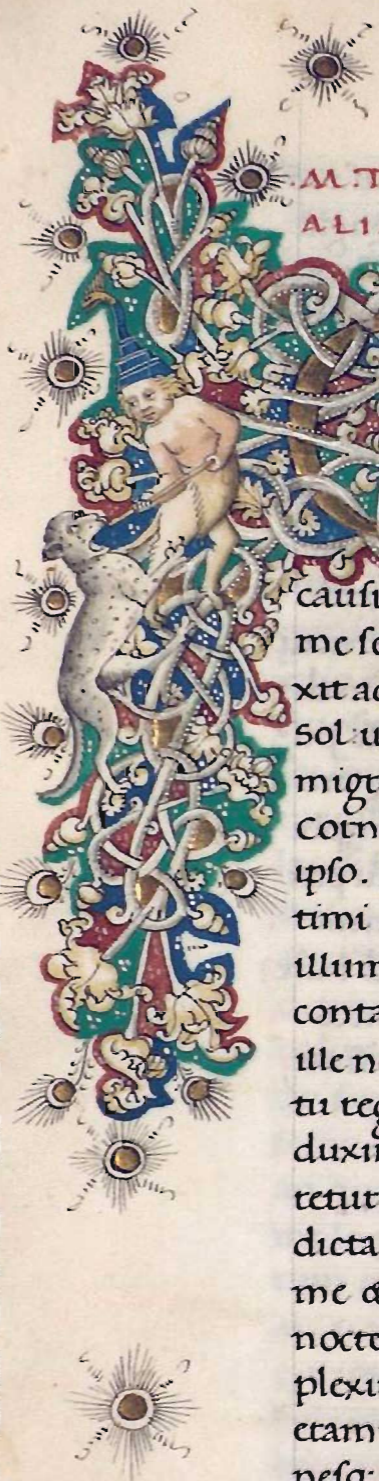 M. T
ALI
causu
me se
xit ad
Sol: u
migr
Corn
ipso.
timi
illum
conta
ille n
tu reg
duxim
retur
dicta
me &
nocte
plexu
etam
nesqu